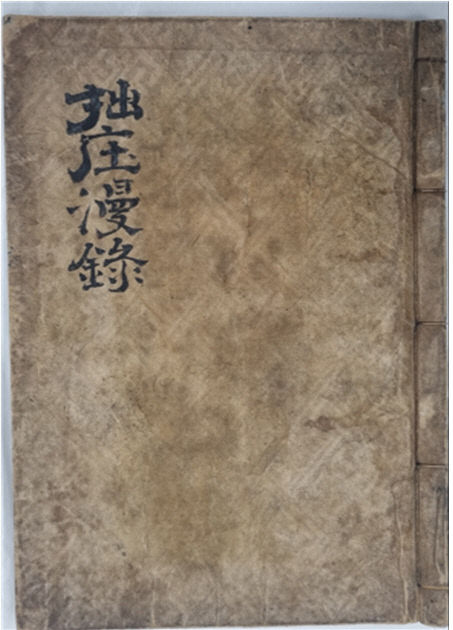 拙庄漫錄